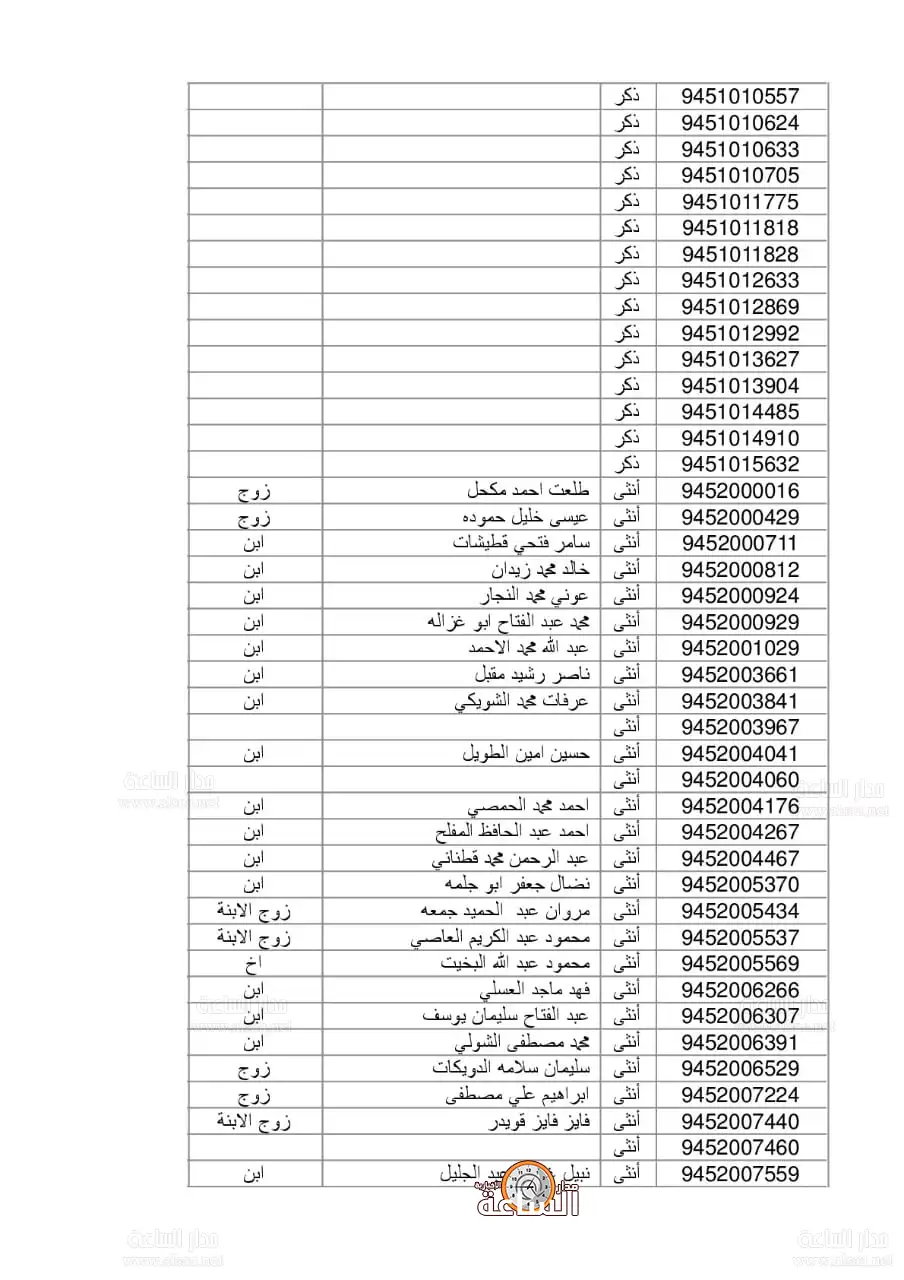 9451010557 ذكر
9451010624 ذكر
9451010633 ذكر
9451010705 ذكر
9451011775 ذكر
9451011818 ذكر
9451011828 ذكر
9451012633 ذكر
9451012869 ذكر
9451012992 ذكر
9451013627 ذكر
9451013904 ذكر
9451014485 ذكر
9451014910 ذكر
9451015632 ذكر
9452000016 أنثى طلعت احمد مكحل زوج
9452000429 أنثى عيسى خليل حموده زوج
9452000711 أنثى سامر فتحي قطيشات ابن
9452000812 أنثى خالد محمد زيدان ابن
9452000924 أنثى عوني محمد النجار ابن
9452000929 أنثى محمد عبد الفتاح ابو غزاله ابن
9452001029 أنثى عبد الله محمد الاحمد ابن
9452003661 أنثى ناصر رشيد مقبل ابن
9452003841 أنثى عرفات محمد الشويكي ابن
9452003967 أنثى
9452004041 أنثى حسين امين الطويل ابن
9452004060 أنثى
9452004176 أنثى احمد محمد الحمصي ابن
9452004267 أنثى احمد عبد الحافظ المفلح ابن
9452004467 أنثى عبد الرحمن محمد قطناني ابن
9452005370 أنثى نضال جعفر ابو جلمه ابن
9452005434 أنثى مروان عبد الحميد جمعه زوج الابنة
9452005537 أنثى محمود عبد الكريم العاصي زوج الابنة
9452005569 أنثى محمود عبد الله البخيت اخ
9452006266 أنثى فهد ماجد العسلي ابن
9452006307 أنثى عبد الفتاح سليمان يوسف ابن
9452006391 أنثى محمد مصطفى الشولي ابن
9452006529 أنثى سليمان سلامه الدويكات زوج
9452007224 أنثى ابراهيم علي مصطفى زوج
9452007440 أنثى فايز فايز قويدر زوج الابنة
9452007460 أنثى
9452007559 أنثى نبيل عبد الجليل ابن
مدار الساعة الإخبارية
مدار الساعة
www.alsaa.net
مدار الساعة
www.alsaa.net
مدار الساعة
www.alsaa.net
مدار الساعة
www.alsaa.net
مدار الساعة
www.alsaa.net
مدار الساعة
www.alsaa.net